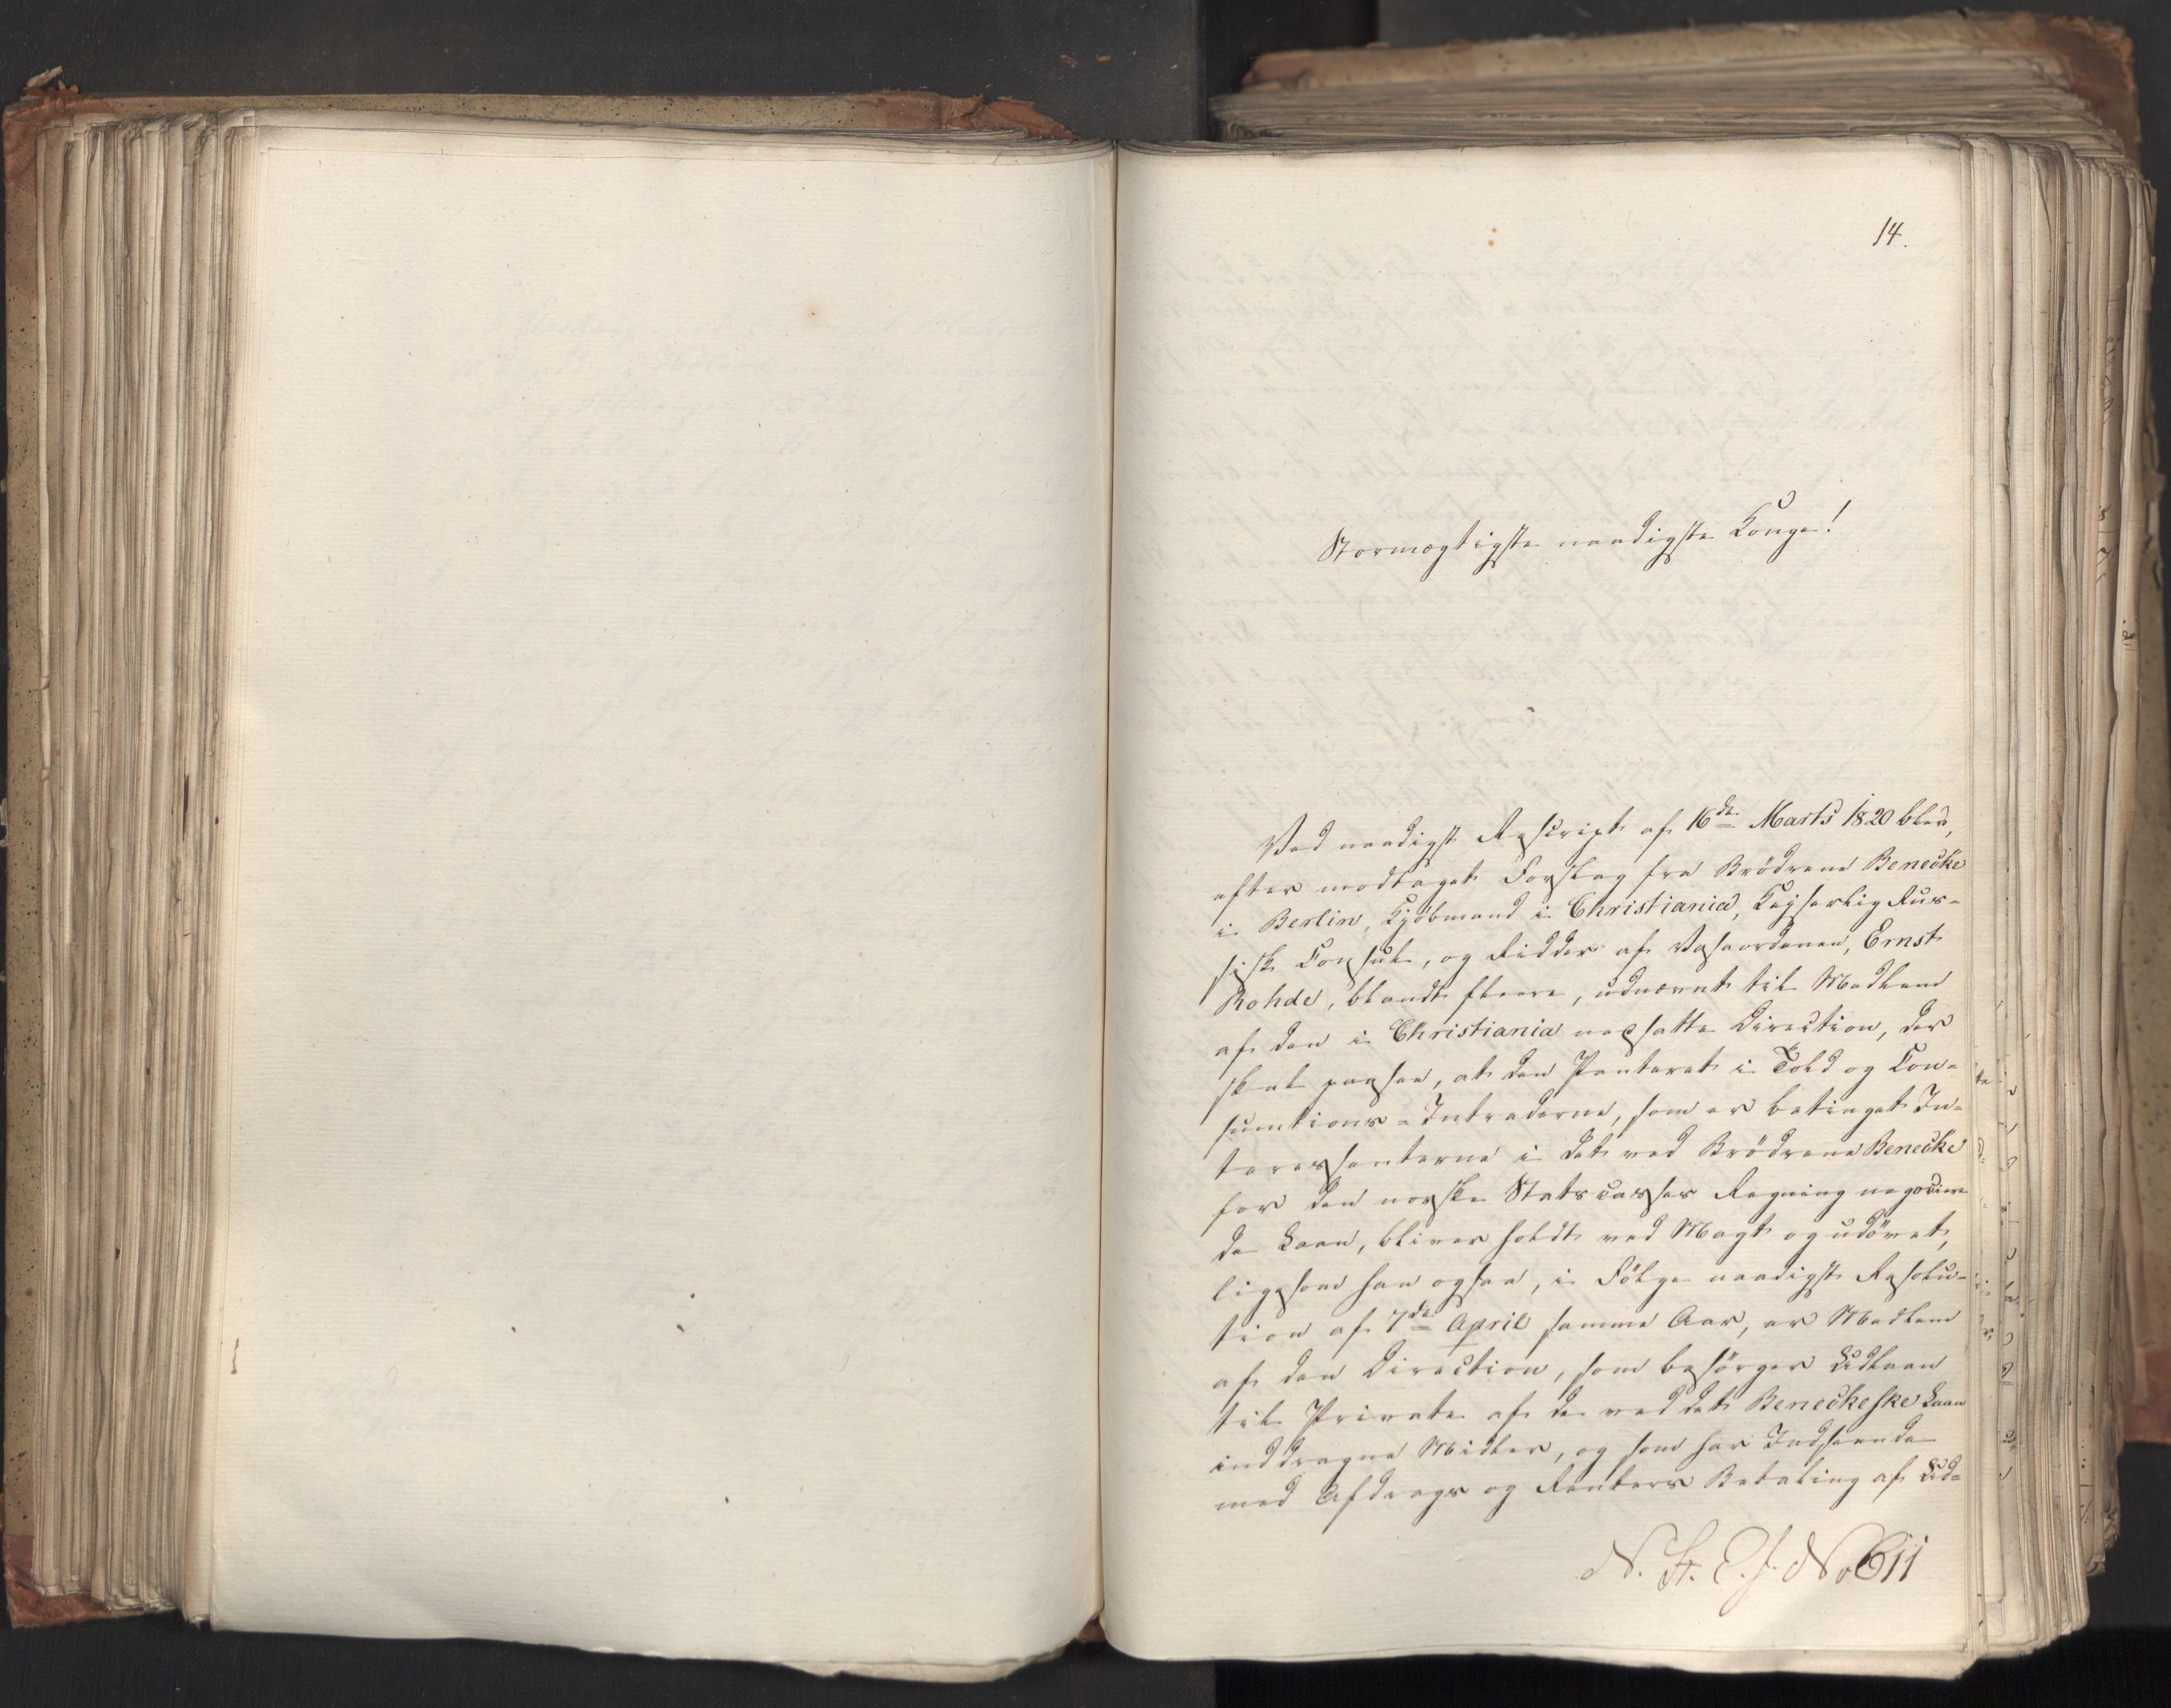 14.
Stormægtigste naadigste Konge!
Ved naadigst Rescript af 16de Marts 1820 blev,
efter modtaget Forslag fra Brödrene Benecke
i Berlin, Kjöbmand i Christiania, Kejserlig Rus-
sisk Consul, og Ridder af Vasaordenen, Ernst
Rohde, blandt fleere, udnævnt til Medlem
af den i Christiania nedsatte Direction, der
skal paasee, at den Panteret i Told og Con-
sumtions-Intraderne, som er betinget In-
teressenterne i det ved Brödrene Benecke
for den norske Statscasses Regning negociere-
de Laan, bliver holdt ved Magt og udövet,
ligesom han ogsaa, i Fölge naadigst Resolu-
tion af 7de April samme Aar, er Medlem
af den Direction, som besörger Udlaan
til Private af de ved det Beneckeske Laan
inddragne Midler, og som har Indseende
med Afdrags og Renters Betaling af Ud-
N. St. E. J. No 611